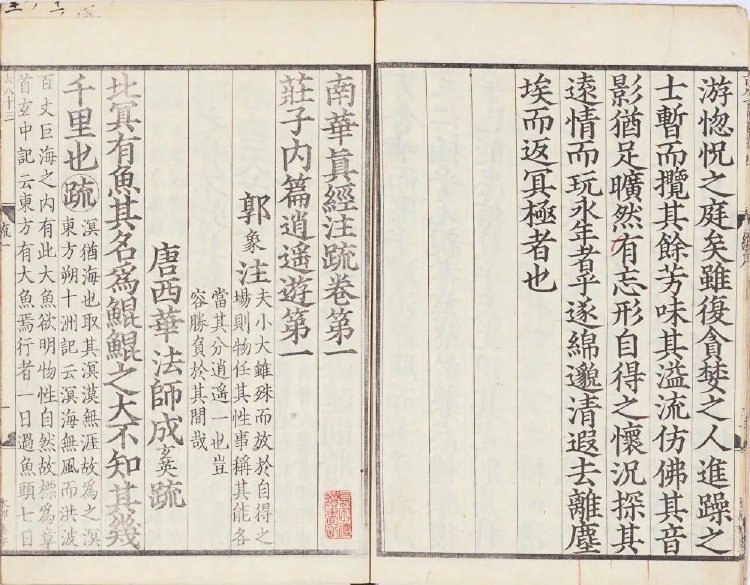 游惚怳之庭矣雖復貪婪之人進躁之
士暫而攬其餘芳味其溢流仿佛其音
影猶足曠然有忘形自得之懷況探其
遠情而玩永年者乎遂綿邈清遐去離塵
埃而返冥極者也
南華眞經注疏卷第一
莊子內篇逍遙遊第一
郭象注
夫小大雖殊而放於自得之
場則物任其性事稱其能各
當其分逍遙一也豈
容勝負於其間哉
唐西華法師成玄英疏
北冥有魚其名爲鯤鯤之大不知其幾
千里也疏
溟猶海也取其溟漠無涯故爲之溟
東方朔十洲記云溟海無風而洪波
百丈巨海之內有此大魚欲明物性自然故標爲章
首玄中記云東方有大魚焉行者一日過魚頭七日